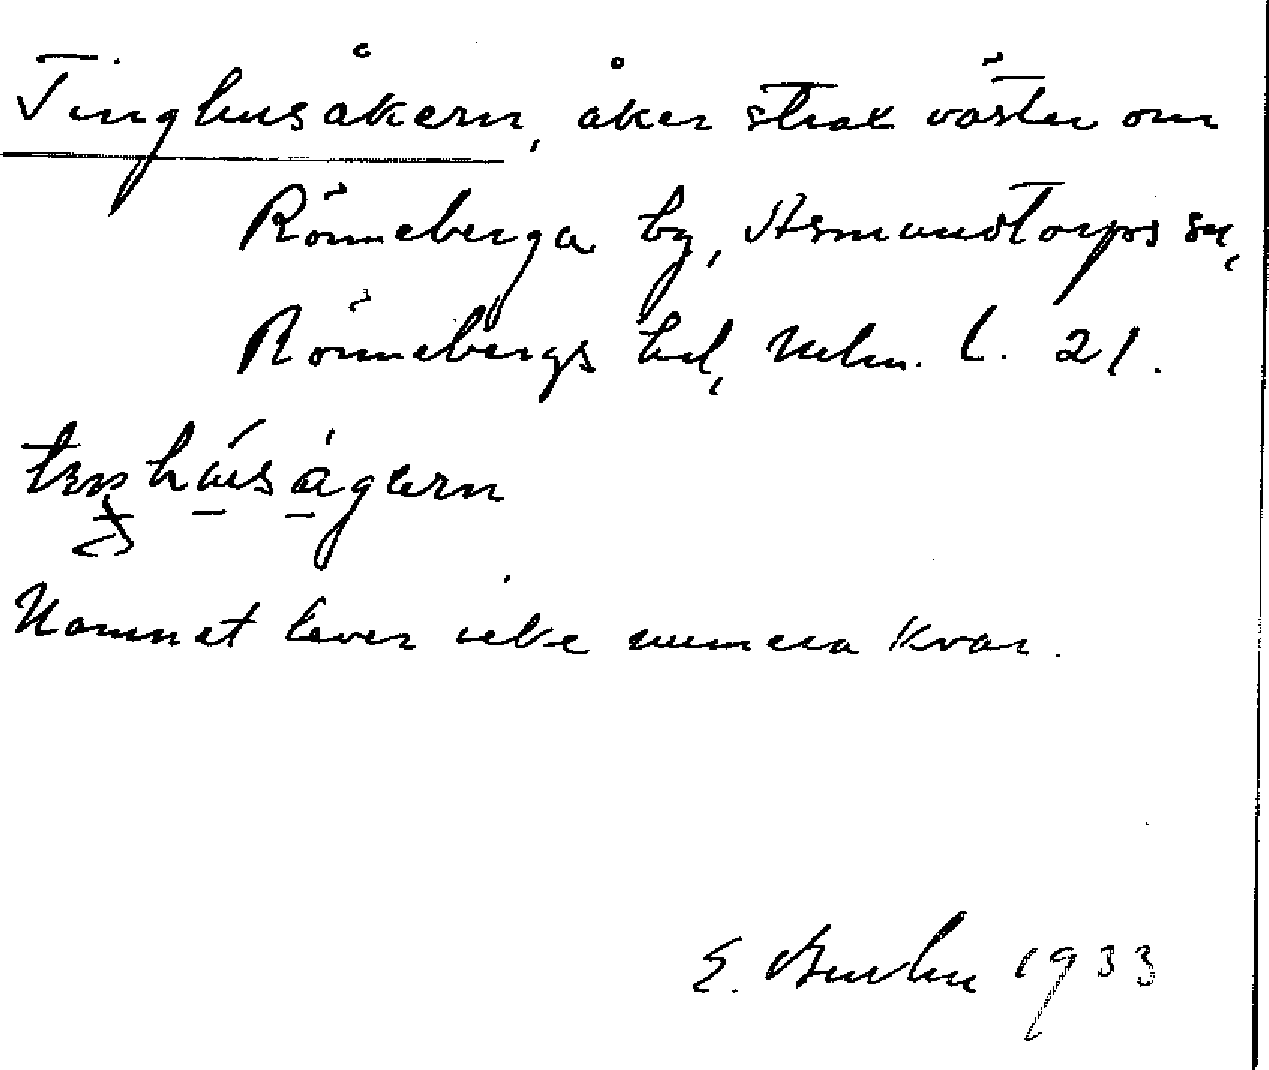 Tinghusåkern, åker strax väster om
Rönneberga by, Asmundtorps sn,
Rönnebergs hd, Mlm. l. 21.
Namnet lever icke numera kvar.
E. 1933